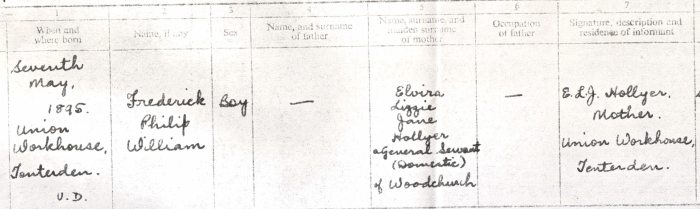 1 2 3 4 5 6 7
When and where born
Name, if any
Sex
Name, and surname of father
Name, surname, and maiden surname of mother
Occupation of father
Signature, description and residence of informant
Seventh
May,
1895.
Union
Workhouse,
Tenterden.
U.D.
Frederick
Philip
William
Boy
—
Elvira
Lizzie
Jane
Hollyer
a General Servant
(Domestic)
of Woodchurch
—
E.L.J. Hollyer.
Mother.
Union Workhouse,
Tenterden.